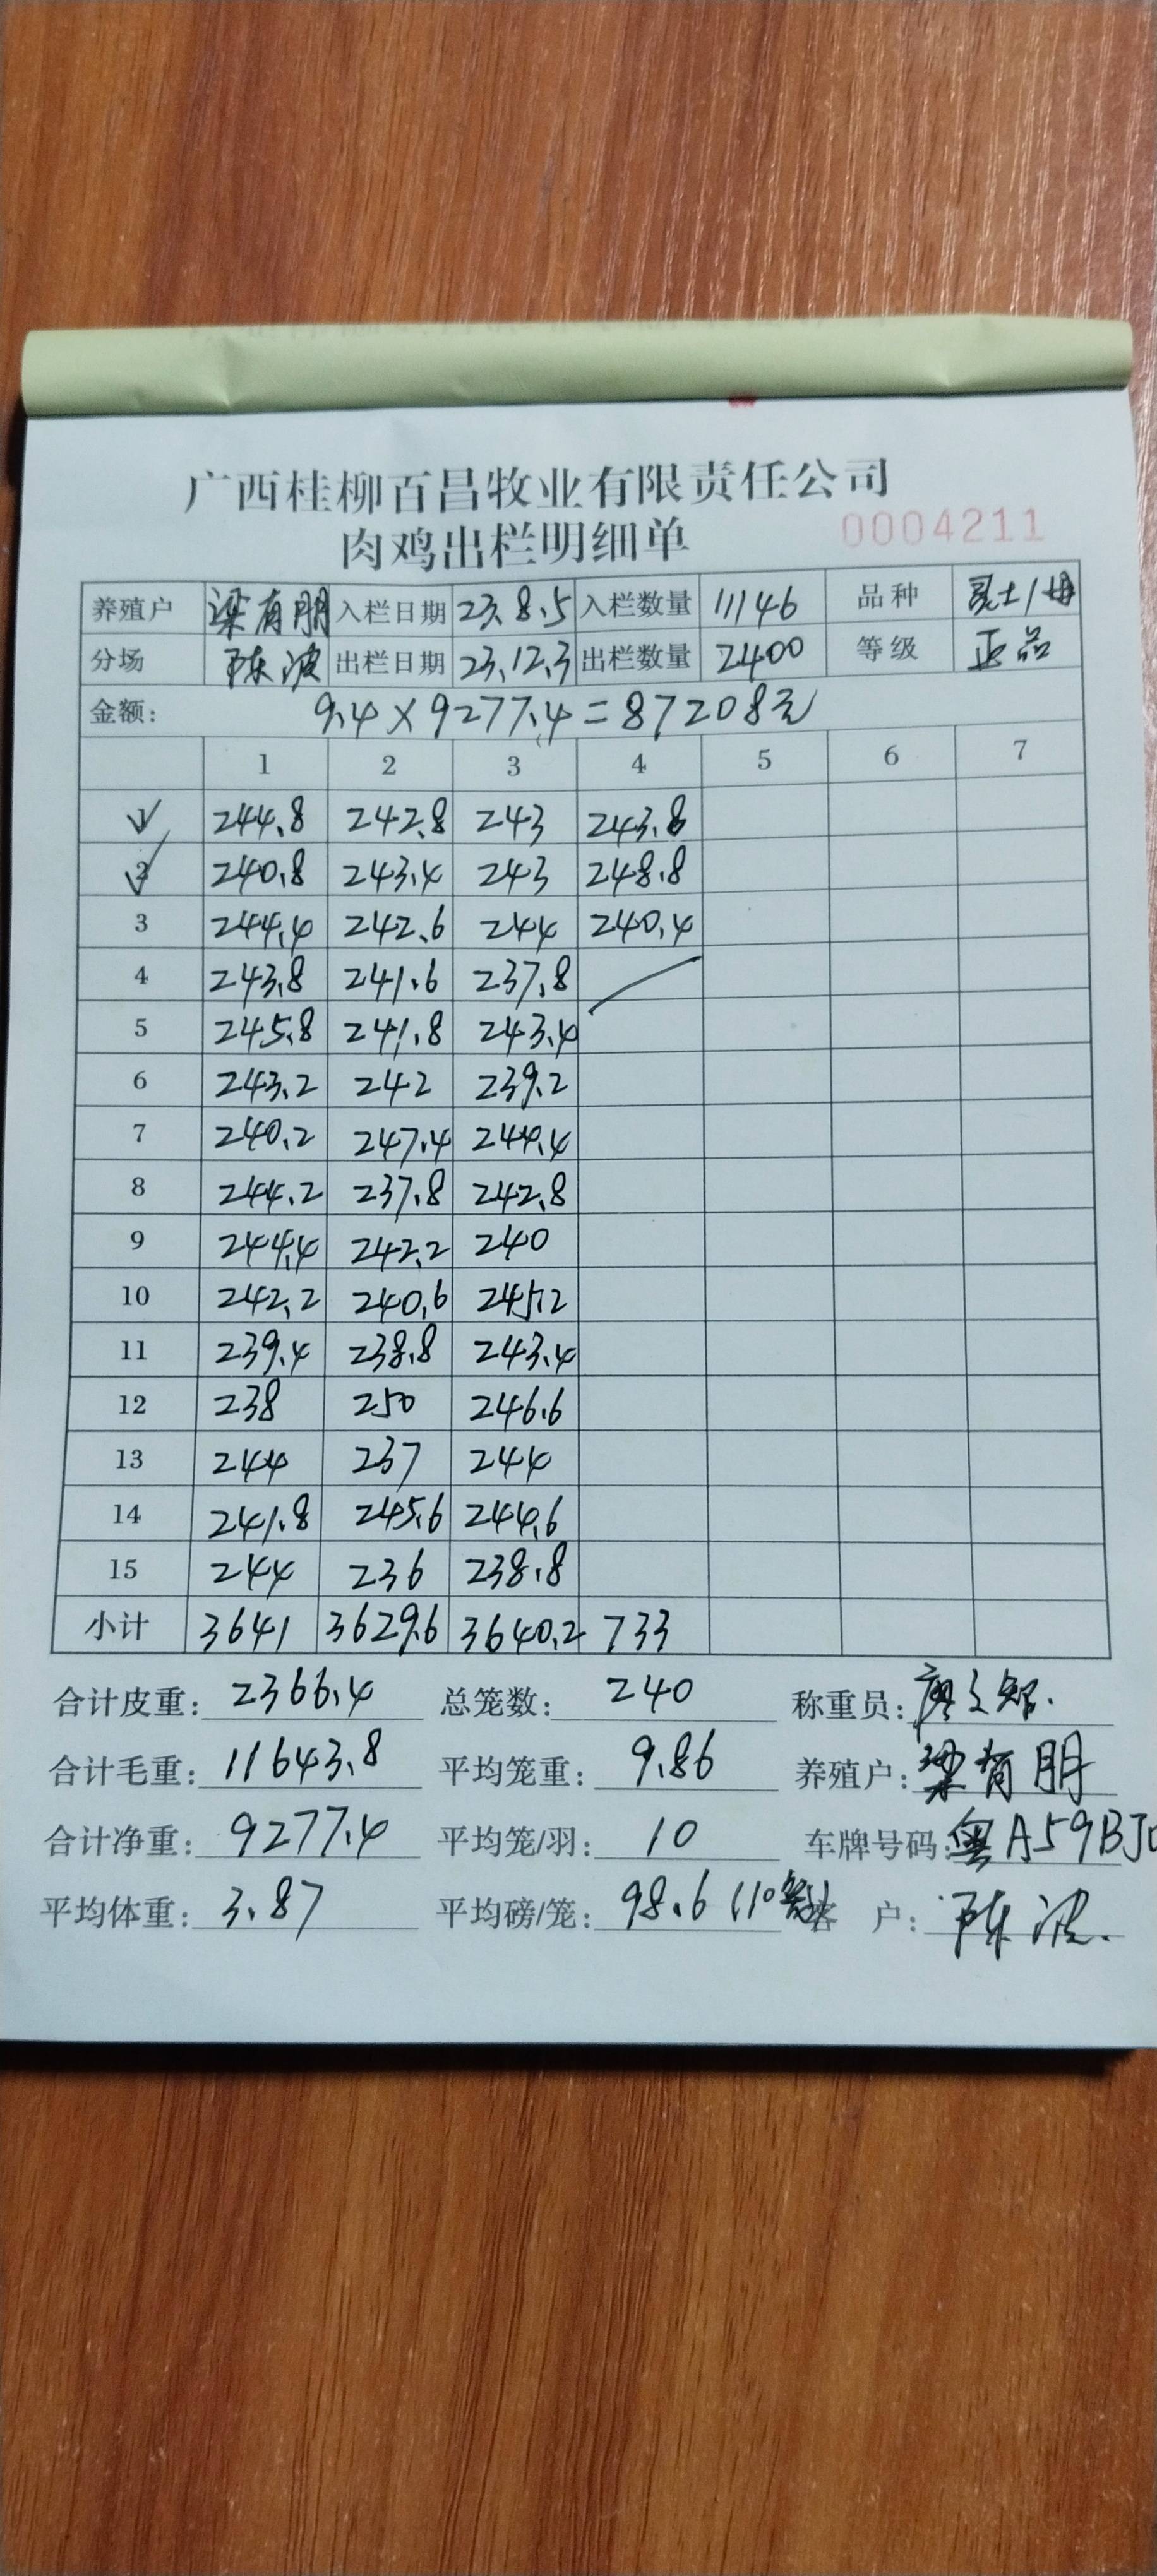 广西桂柳百昌牧业有限责任公司
肉鸡出栏明细单 0004211
养殖户 梁有朋 入栏日期 23.8.5 入栏数量 11146 品种
分场 陈波 出栏日期 23.12.3 出栏数量 2400 等级 正品
金额: 9.4×9277.4=87208元
1 2 3 4 5 6 7
1 244.8 242.8 243 243.8
2 240.8 243.4 243 248.8
3 244.4 242.6 244 240.4
4 243.8 241.6 237.8
5 245.8 241.8 243.4
6 243.2 242 239.2
7 240.2 247.4 244.4
8 244.2 237.8 242.8
9 244.4 242.2 240
10 242.2 240.6 245.2
11 239.4 238.8 243.4
12 238 250 246.6
13 244 237 244
14 241.8 245.6 244.6
15 244 236 238.8
小计 3641 3629.6 3640.2 733
合计皮重: 2366.4 总笼数: 240 称重员: 廖文智.
合计毛重: 11643.8 平均笼重: 9.86 养殖户: 梁有朋
合计净重: 9277.4 平均笼/羽: 10 车牌号码: 粤A59BJ
平均体重: 3.87 平均磅/笼: 98.6 客 户: 陈波.